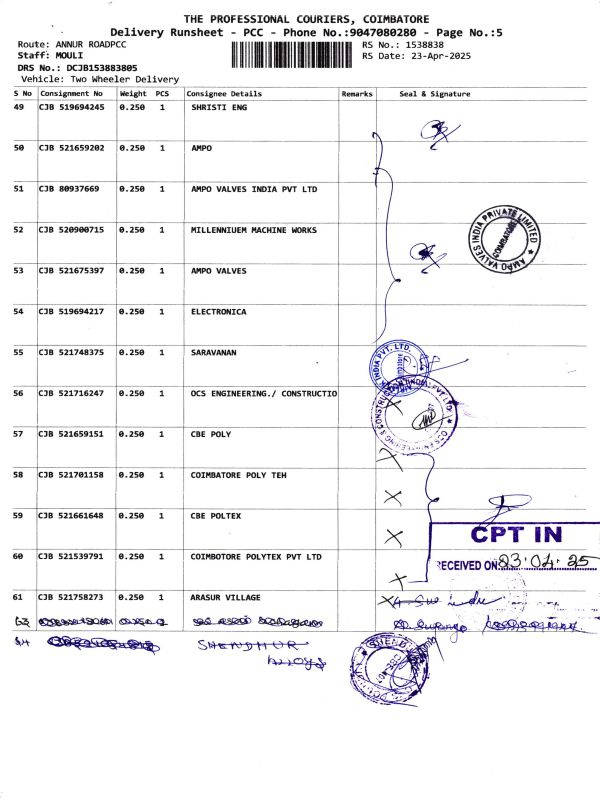 THE PROFESSIONAL COURIERS, COIMBATORE
Delivery Runsheet - PCC - Phone No.:9047080280 - Page No.:5
Route: ANNUR ROADPCC RS No.: 1538838
Staff: MOULI RS Date: 23-Apr-2025
DRS No.: DCJB153883805
Vehicle: Two Wheeler Delivery
S No Consignment No Weight PCS Consignee Details Remarks Seal & Signature
49 CJB 519694245 0.250 1 SHRISTI ENG
50 CJB 521659202 0.250 1 AMPO
51 CJB 80937669 0.250 1 AMPO VALVES INDIA PVT LTD
52 CJB 520900715 0.250 1 MILLENNIUEM MACHINE WORKS
AMPO VALVES INDIA PRIVATE LIMITED
COIMBATORE
53 CJB 521675397 0.250 1 AMPO VALVES
54 CJB 519694217 0.250 1 ELECTRONICA
55 CJB 521748375 0.250 1 SARAVANAN
INDIA PVT. LTD.
56 CJB 521716247 0.250 1 OCS ENGINEERING./ CONSTRUCTIO
OCS ENGINEERING & CONSTRUCTION INDIA PVT LTD
57 CJB 521659151 0.250 1 CBE POLY
58 CJB 521701158 0.250 1 COIMBATORE POLY TEH
59 CJB 521661648 0.250 1 CBE POLTEX
CPT IN
60 CJB 521539791 0.250 1 COIMBOTORE POLYTEX PVT LTD
RECEIVED ON 23.04.25
61 CJB 521758273 0.250 1 ARASUR VILLAGE
SHENDHUR
Alloys